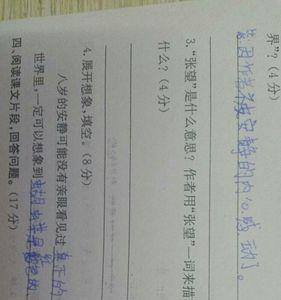 界”？（4分）
是因作者被安静的内心感动了。
3.“张望”是什么意思？作者用“张望”一词来描
什么？（4分）
4.展开想象，填空。（8分）
八岁的安静可能没有亲眼看见过真正的
世界里，一定可以想象到
四、阅读课文片段，回答问题。（17分）